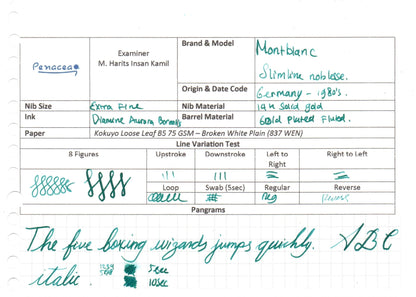 Penaceae
Examiner
M. Harits Insan Kamil
Brand & Model
Montblanc
Slimline noblesse.
Origin & Date Code
Germany - 1980's.
Nib Size
Extra Fine
Nib Material
14k Solid gold
Ink
Diamine Aurora Borealis
Barrel Material
Gold Plated Fluted.
Paper
Kokuyo Loose Leaf B5 75 GSM – Broken White Plain (837 WEN)
Line Variation Test
8 Figures
Upstroke
Downstroke
Left to Right
Right to Left
Loop
Swab (5sec)
Regular
Reverse
Reg
Reverse
Pangrams
The five boxing wizards jumps quickly. ABC
italic.
5sec
10sec